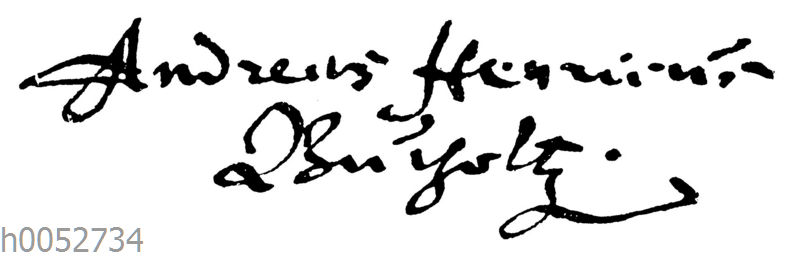 Andreas Henricus
Bucholtz.
h0052734